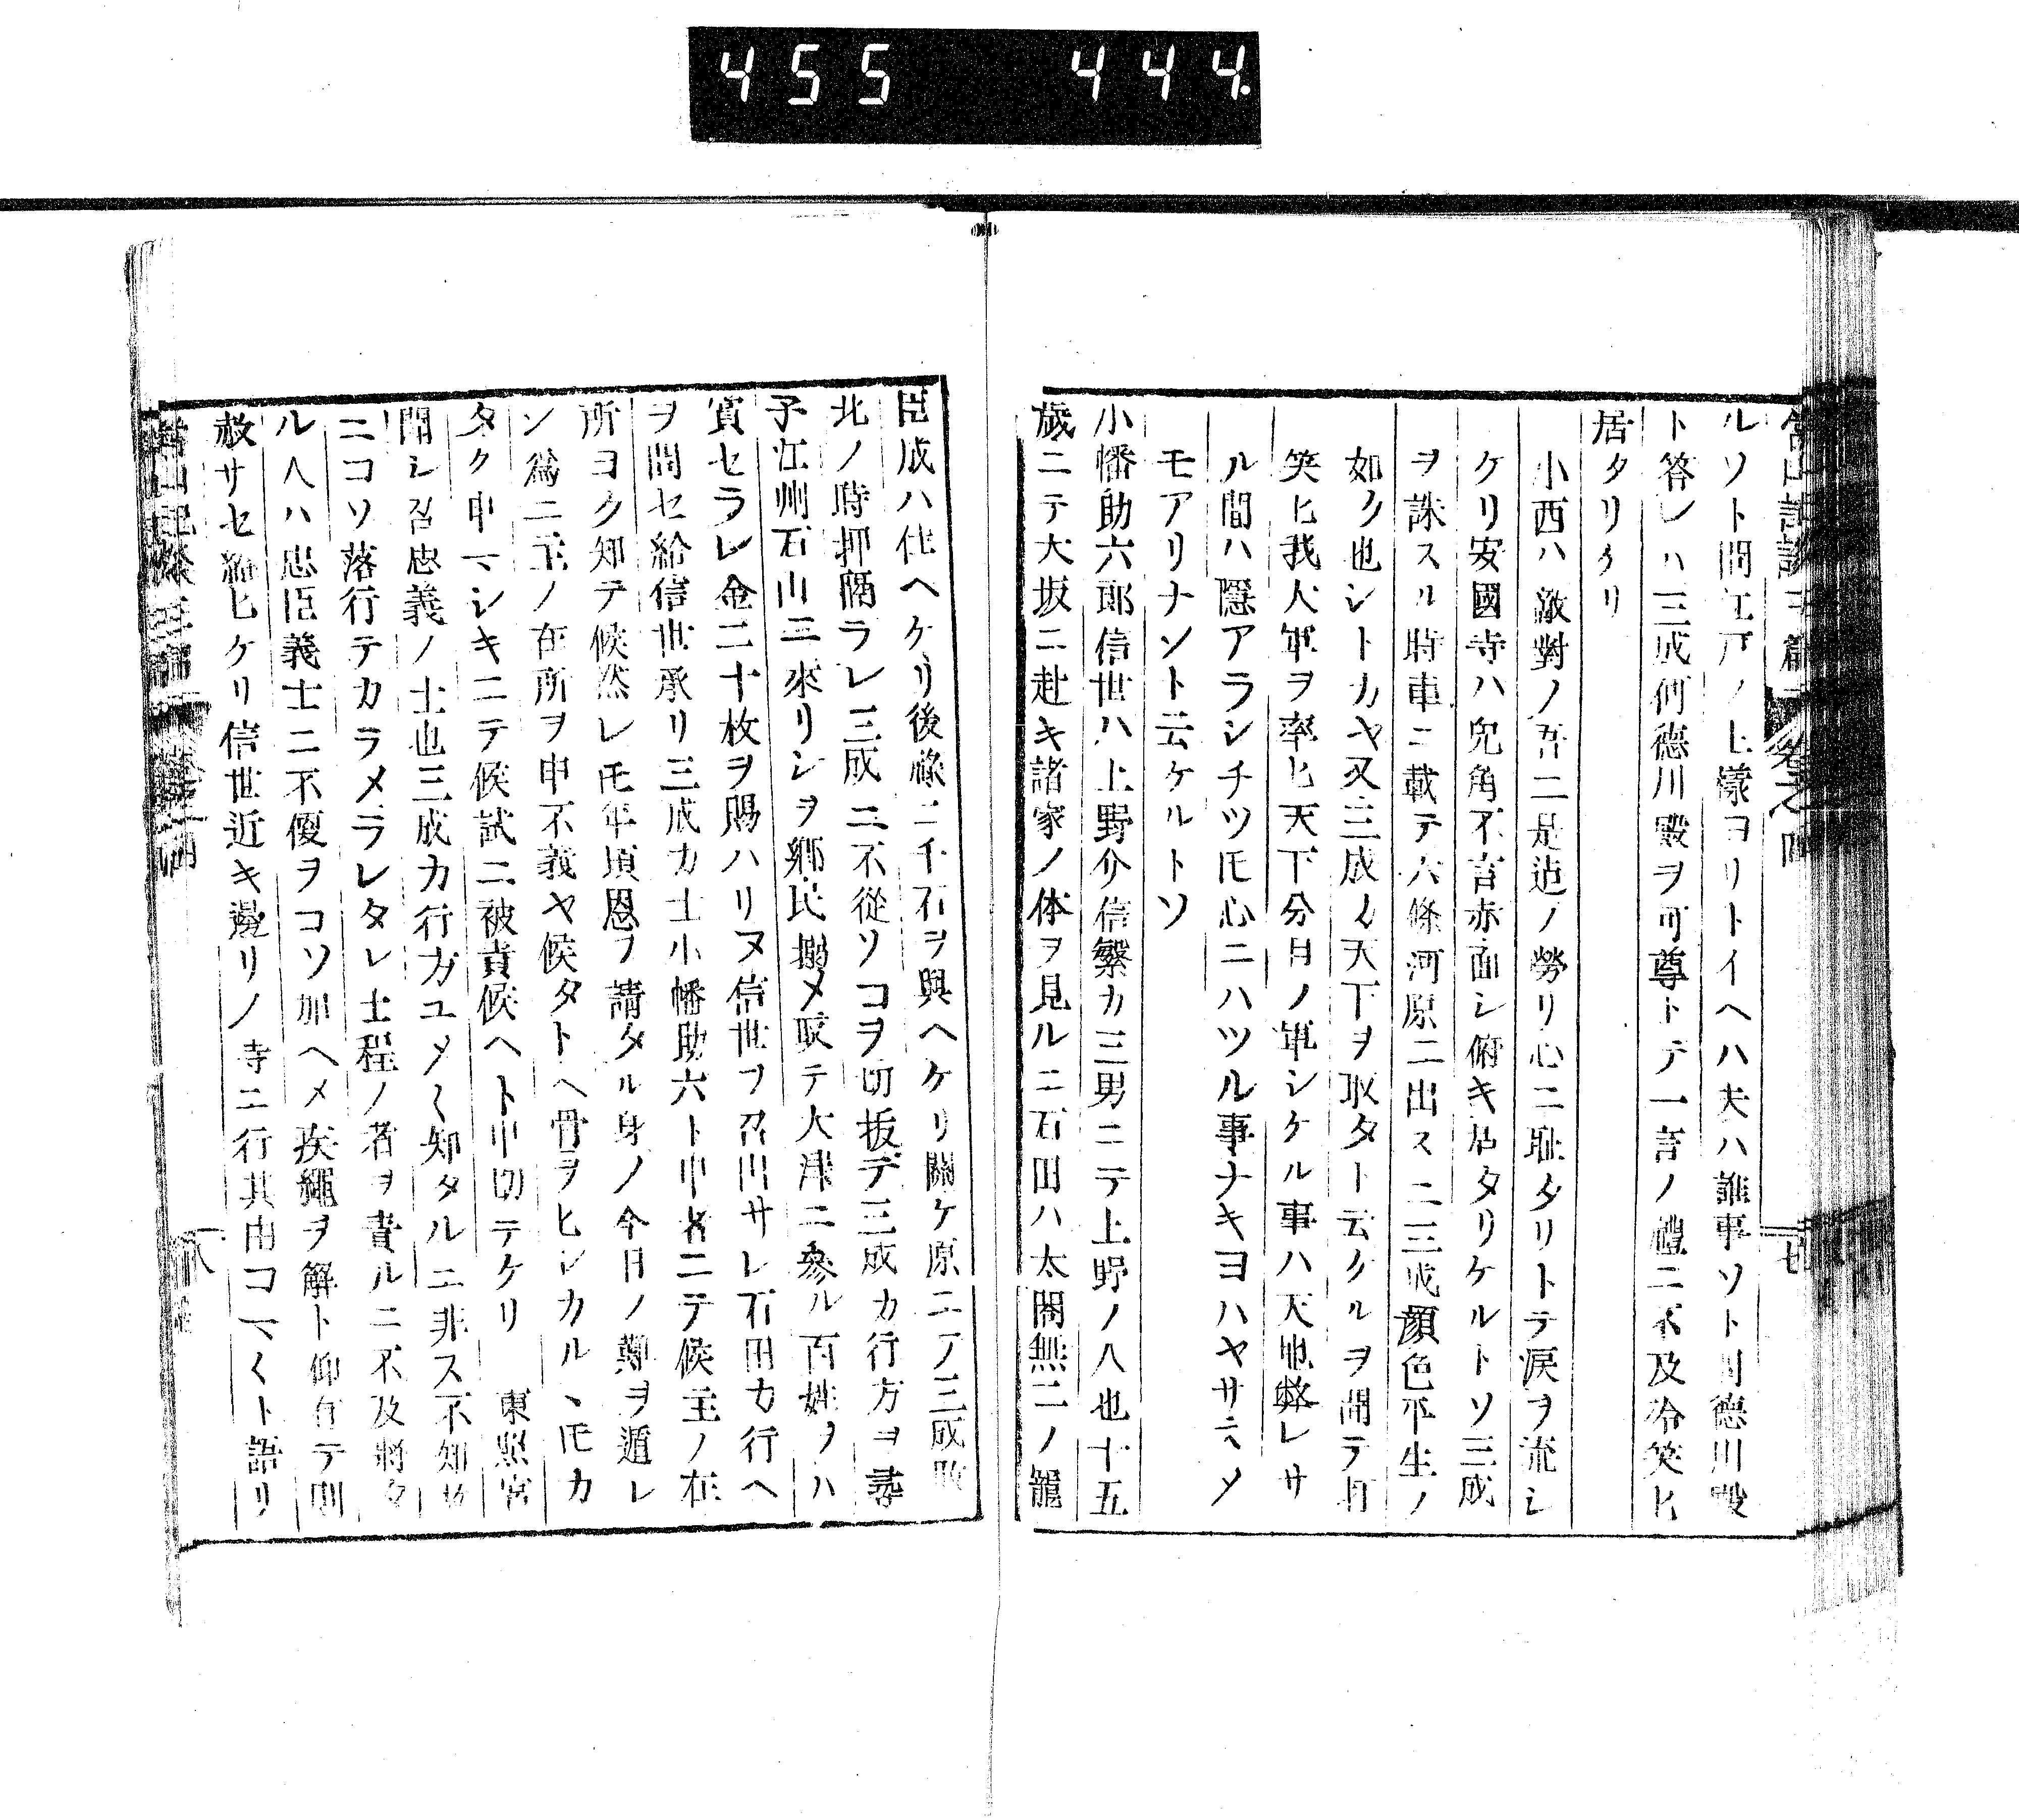 455 444
ルソト問江戸ノ上樣ヨリトイヘハ夫ハ誰事ソト問德川殿
ト答レハ三成何德川殿ヲ可尊トテ一言ノ禮ニ不及冷笑ヒ
居タリケリ
小西ハ敵對ノ吾ニ是迄ノ勞リ心ニ耻タリトテ涙ヲ流シ
ケリ安國寺ハ兜角不言赤面シ俯キ居タリケルトソ三成
ヲ誅スル時車ニ載テ六條河原ニ出スニ三成顏色平生ノ
如ク也シトカヤ又三成ノ天下ヲ取タト云クルヲ聞テ打
笑ヒ我大軍ヲ率ヒ天下分目ノ軍シケル事ハ天地弊レサ
ル間ハ隱アラシチツトモ心ニハツル事ナキヨハヤサニメ
モアリナソト云ケルトソ
小幡助六郎信世ハ上野介信繁カ三男ニテ上野ノ人也十五
歲ニテ大坂ニ赴キ諸家ノ体ヲ見ルニ石田ハ太閤無二ノ寵
臣成ハ仕ヘケリ後祿二千石ヲ與ヘケリ關ケ原ニテ三成敗
北ノ時押隔ラレ三成ニ不從ソコヲ切拔テ三成カ行方ヲ尋
子江州石山ニ來リシヲ鄕民搦メ取テ大津ニ參ル百姓ヲハ
賞セラレ金二十枚ヲ賜ハリヌ信世ヲ召出サレ石田カ行ヘ
ヲ問セ給信世承リ三成カ士小幡助六ト申者ニテ候主ノ在
所ヨク知テ候然レトモ年頃恩ヲ請タル身ノ今日ノ難ヲ遁レ
ン爲ニ主ノ在所ヲ申不義ヤ候タトヘ骨ヲヒシカルヽトモカ
タク申マシキニテ候試ニ被責候ヘト申切テケリ 東照宮
聞シ召忠義ノ士也三成カ行方ユメ〱知タルニ非ス不知故
ニコソ落行テカラメラレタレ士程ノ者ヲ責ルニ不及將タ
ル人ハ忠臣義士ニ不優ヲコソ加ヘメ疾繩ヲ解ト仰有テ則
赦サセ給ヒケリ信世近キ邊リノ寺ニ行其由コマ〱ト語リ
八